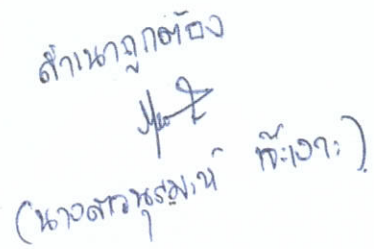 สำเนาถูกต้อง
(นางสาวนุรมะห์ เจ๊ะเงาะ)